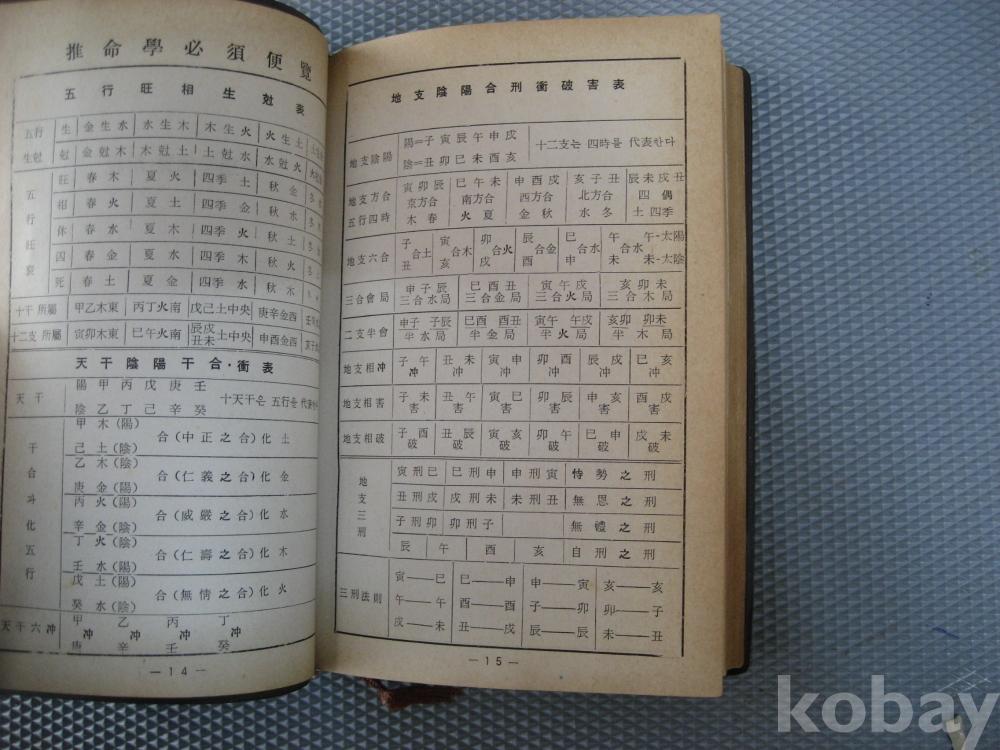 推命學必須便覽
五行旺相生尅表
五行 生 金生水 水生木 木生火 火生土
生尅 尅 金尅木 木尅土 土尅水 水尅火
五行旺衰
旺 春木 夏火 四季土 秋金
相 春火 夏土 四季金 秋水
休 春水 夏木 四季火 秋土
囚 春金 夏水 四季木 秋火
死 春土 夏金 四季水 秋木
十干所屬 甲乙木東 丙丁火南 戊己土中央 庚辛金西
十二支所屬 寅卯木東 巳午火南 辰戌丑未土中央 申酉金西
天干陰陽干合·衝表
天干
陽甲丙戊庚壬
陰乙丁己辛癸
十天干은 五行을
干合斗化五行
甲木(陽)
己土(陰)
合(中正之合)化土
乙木(陰)
庚金(陽)
合(仁義之合)化金
丙火(陽)
辛金(陰)
合(威嚴之合)化水
丁火(陰)
壬水(陽)
合(仁壽之合)化木
戊土(陽)
癸水(陰)
合(無情之合)化火
天干六冲
甲 乙 丙 丁
冲 冲 冲 冲
庚 辛 壬 癸
—14—
地支陰陽合刑衝破害表
地支陰陽
陽=子寅辰午申戌
陰=丑卯巳未酉亥
十二支는 四時를 代表한다
地支方合 寅卯辰 巳午未 申酉戌 亥子丑 辰未戌丑
京方合 南方合 西方合 北方合 四偶
五行四時 木春 火夏 金秋 水冬 土四季
地支六合
子 寅 卯 辰 巳 午 午-太陽
合土 合木 合火 合金 合水 合水
丑 亥 戌 酉 申 未 未-太陰
三合會局 申子辰 巳酉丑 寅午戌 亥卯未
三合水局 三合金局 三合火局 三合木局
二支半會 申子 子辰 巳酉 酉丑 寅午 午戌 亥卯 卯未
半水局 半金局 半火局 半木局
地支相冲 子午 丑未 寅申 卯酉 辰戌 巳亥
冲 冲 冲 冲 冲 冲
地支相害 子未 丑午 寅巳 卯辰 申亥 酉戌
害 害 害 害 害 害
地支相破 子酉 丑辰 寅亥 卯午 巳申 戌未
破 破 破 破 破 破
地支三刑
寅刑巳 巳刑申 申刑寅 恃勢之刑
丑刑戌 戌刑未 未刑丑 無恩之刑
子刑卯 卯刑子 無禮之刑
辰 午 酉 亥 自刑之刑
三刑法則
寅——巳 巳——申 申——寅 亥——亥
午——午 酉——酉 子——卯 卯——子
戌——未 丑——戌 辰——辰 未——丑
—15—
kobay